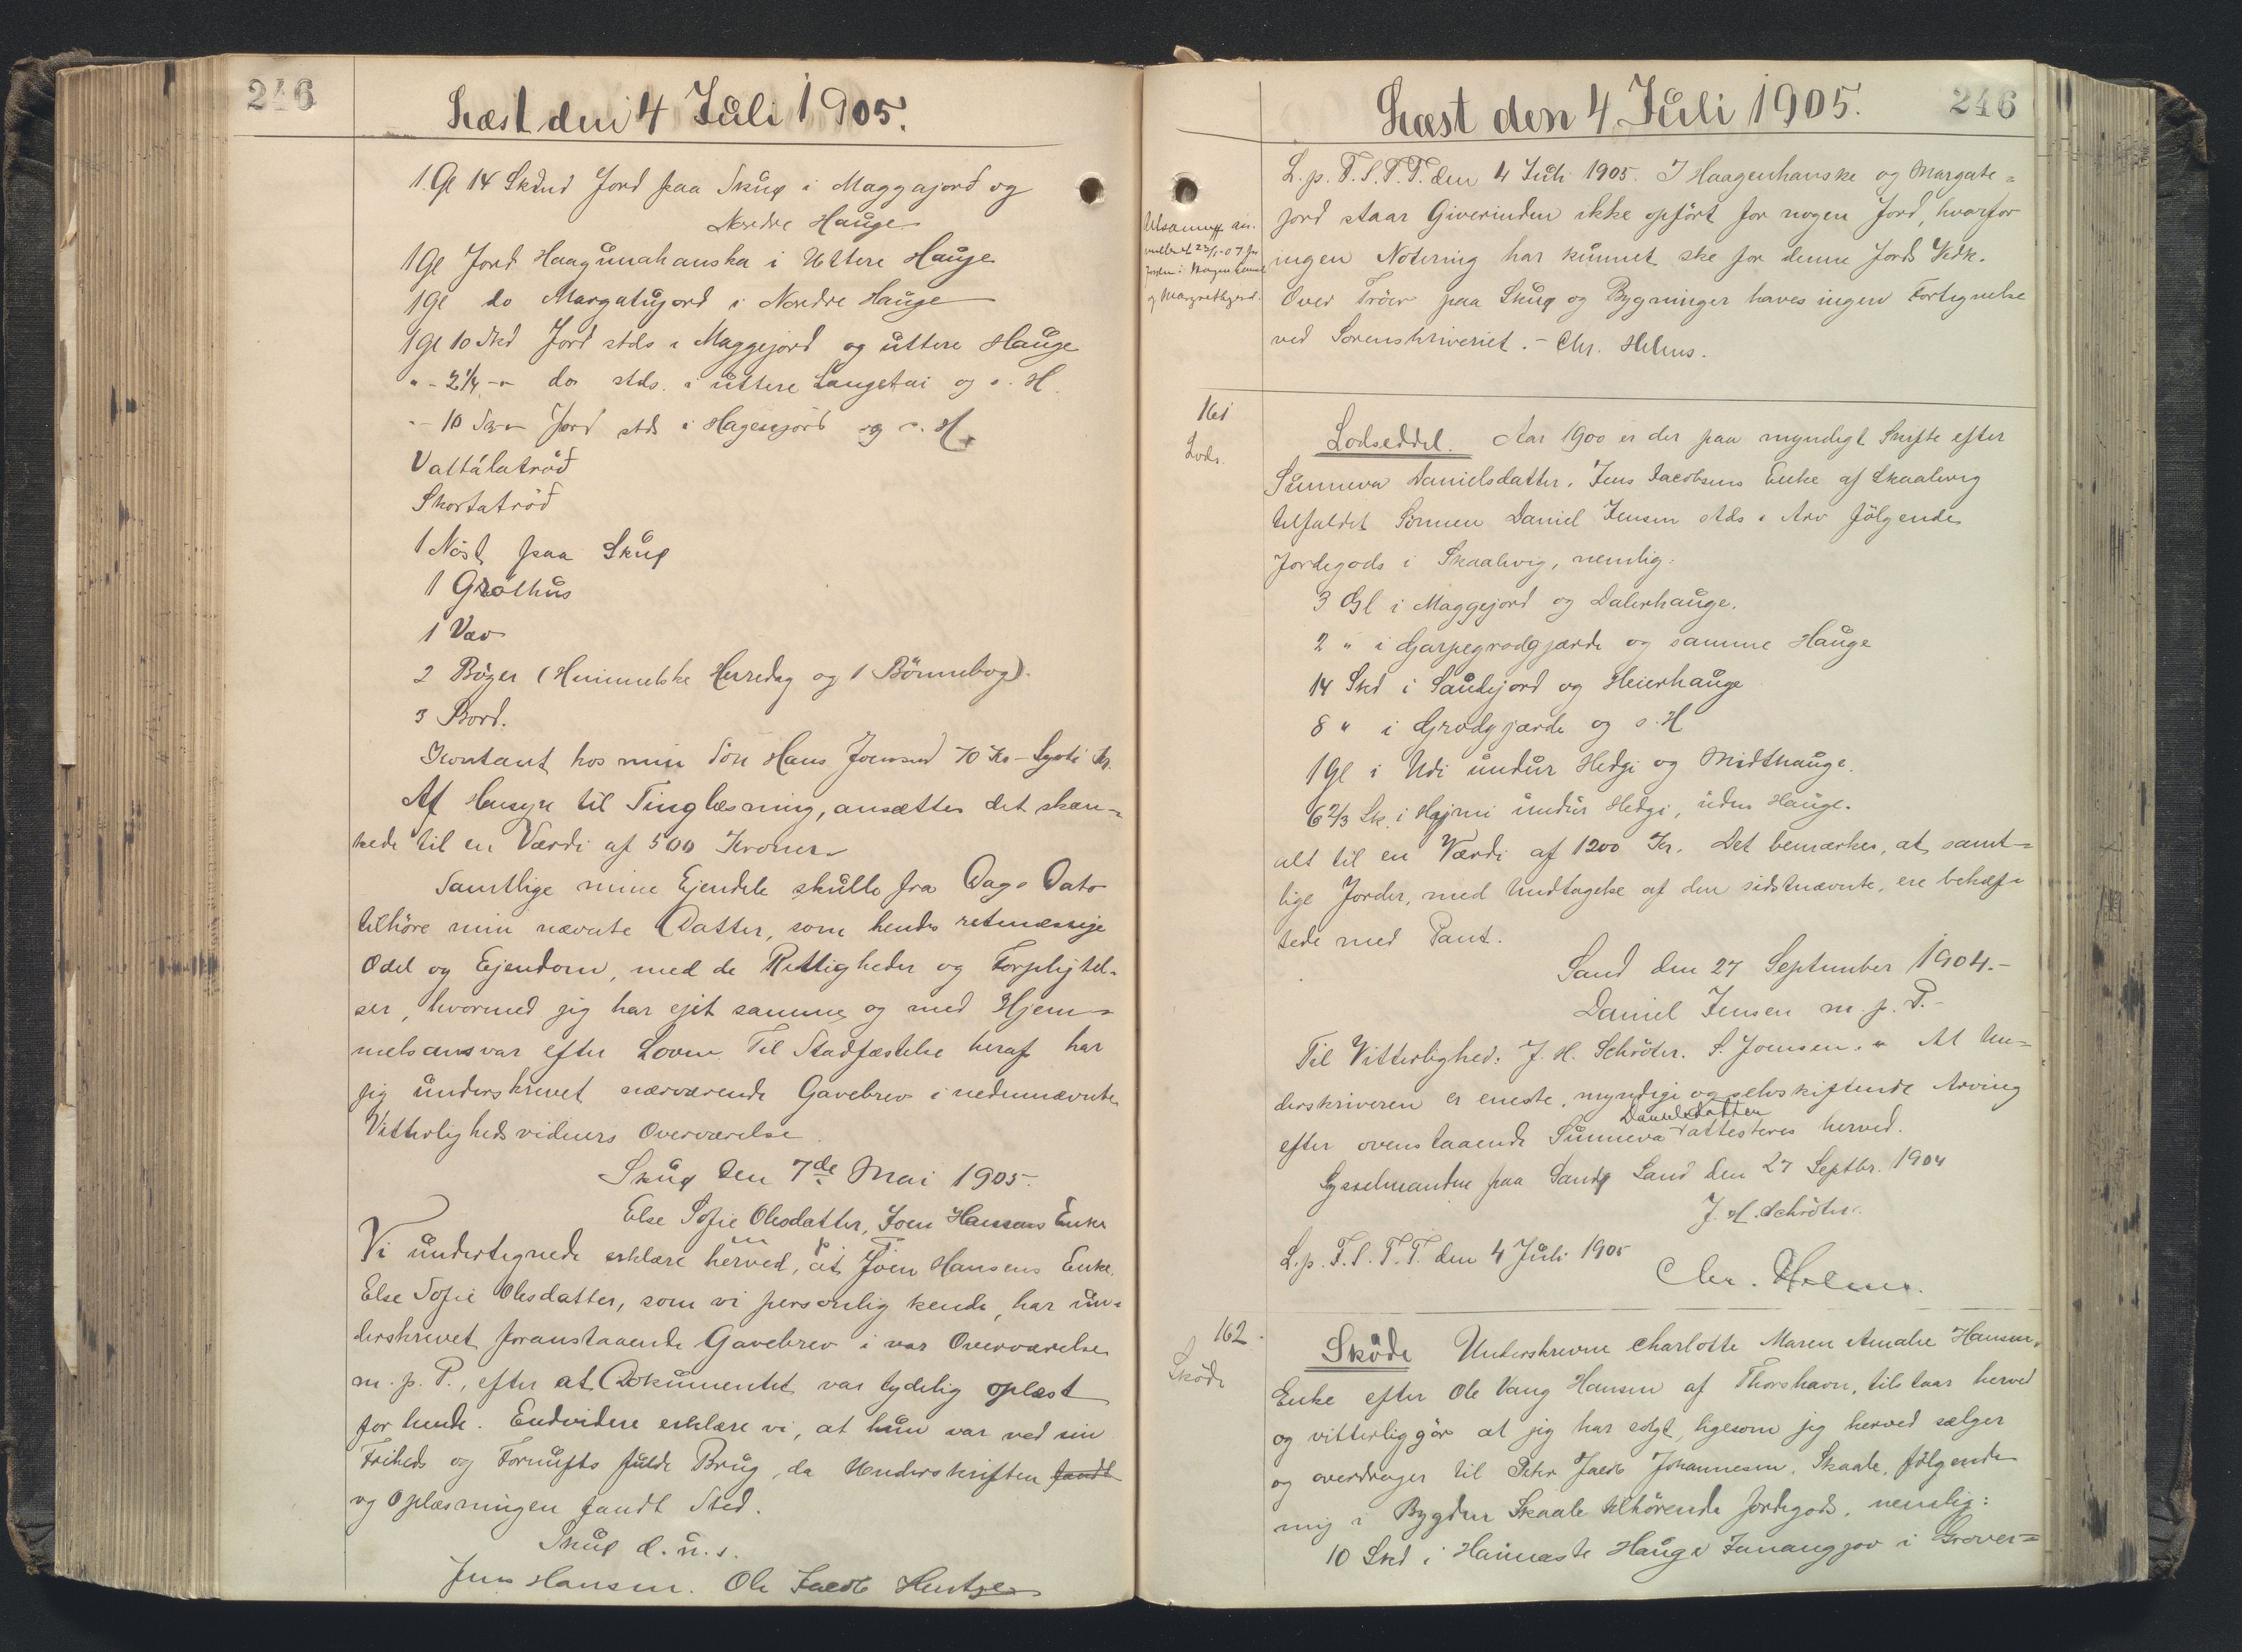 246
Læst den 4 Juli 1905.
1 Gl 14 Skind Jord paa Skuø i Maggajord og
Nordre Hauge
1 Gl Jord Haagunahanska i Uttere Hauge
1 Gl do Margatujord i Nordre Hauge
1 Gl 10 Skd Jord stds i Maggejord og uttere Hauge
" - 2 1/4 - " do stds. i uttere Langetai og s. H.
- 10 Jord stds i Hagenjord og s. H.
Vattálatröd
Skortatröd
1 Nöst paa Skuø
1 Gróthus
1 Væv
2 Böger (Himmelske Herredag og 1 Bönnebog).
3 Bord.
Kontant hos min Sön Hans Joensen 70 Kr - Sytti Kr.
Af Hensyn til Tinglæsning, ansættes det skæn=
kede til en Værdi af 500 Kroner
Samtlige mine Ejendele skulle fra Dags Dato
tilhöre min nævnte Datter, som hendes retmæssige
Odel og Ejendom, med de Rettigheder og Forpligtel=
ser, hvormed jeg har ejet samme og med Hjem=
melsansvar efter Loven. Til Stadfæstelse heraf har
jeg underskrevet nærværende Gavebrev i nedennævnte
Vitterlighedsvidners Overværelse.
Skuø den 7de Mai 1905.
Else Sofie Olesdatter, Joen Hansens Enke
Vi undertegnede erklære herved, at Joen Hansens Enke,
Else Sofie Olesdatter, som vi personlig kende, har un=
derskrevet foranstaaende Gavebrev i vor Overværelse
m. p. P., efter at Dokumentet var tydelig oplæst
for hende. Endvidere erklære vi, at hun var ved sin
Friheds og Fornufts fulde Brug, da Underskriften fandt
og Oplæsningen fandt Sted.
Skuø d. u. s.
Jens Hansen. Ole Jacob Hentze
Læst den 4 Juli 1905.
246
L. p. F. S. T. T. den 4 Juli 1905. I Haagenhanske og Margate=
jord staar Giverinden ikke opfört for nogen Jord, hvorfor
ingen Notering har kunnet ske for denne Jords Vedk.
Over Tröer paa Skuø og Bygninger haves ingen Fortegnelse
ved Sorenskriveriet. - Chr. Helms.
161
Lods.
Lodseddel. Aar 1900 er der paa myndigt Skifte efter
Sunneva Danielsdatter, Jens Jacobsens Enke af Skaalevig
tilfaldet Sönnen Daniel Jensen stds i Arv fölgende
Jordegods i Skaalevig, nemlig:
3 Gl i Maggejord og Dalerhauge.
2 " i Garpegrodgjærde og samme Hauge
14 Skd i Saudejord og Heierhauge
8 " i Grodgjærde og s. H
1 Gl i Udi undur Hedgi og Midthauge.
6 2/3 Sk. i Hejmi undur Hedgi, uden Hauge.
alt til en Værdi af 1200 Kr. Det bemærkes, at samt=
lige Jorder, med Undtagelse af den sidstnævnte, ere behæf=
tede med Pant.
Sand den 27 September 1904.-
Daniel Jensen m. p. P.-
Til Vitterlighed: J. H. Schröter. S. Joensen. " At Un=
derskriveren er eneste, myndige og selvskiftende Arving
efter ovenstaaende Sunneva Danielsdatter attesteres herved.
Sysselmanden paa Sandø Sand den 27 Septbr. 1904
J. H. Schröter.
L. p. F. S. T. T. den 4 Juli 1905
Chr. Helms.
162.
Sköde
Sköde Underskrevne Charlotte Maren Amalie Hansen,
Enke efter Ole Vang Hansen af Thorshavn, tilstaar herved
og vitterliggör at jeg har solgt, ligesom jeg herved sælger
og overdrager til Peter Jacob Johannesen, Skaale, fölgende
mig i Bygden Skaale tilhörende Jordegods, nemlig:
10 Skd i Haimaste Hauge i Grover=